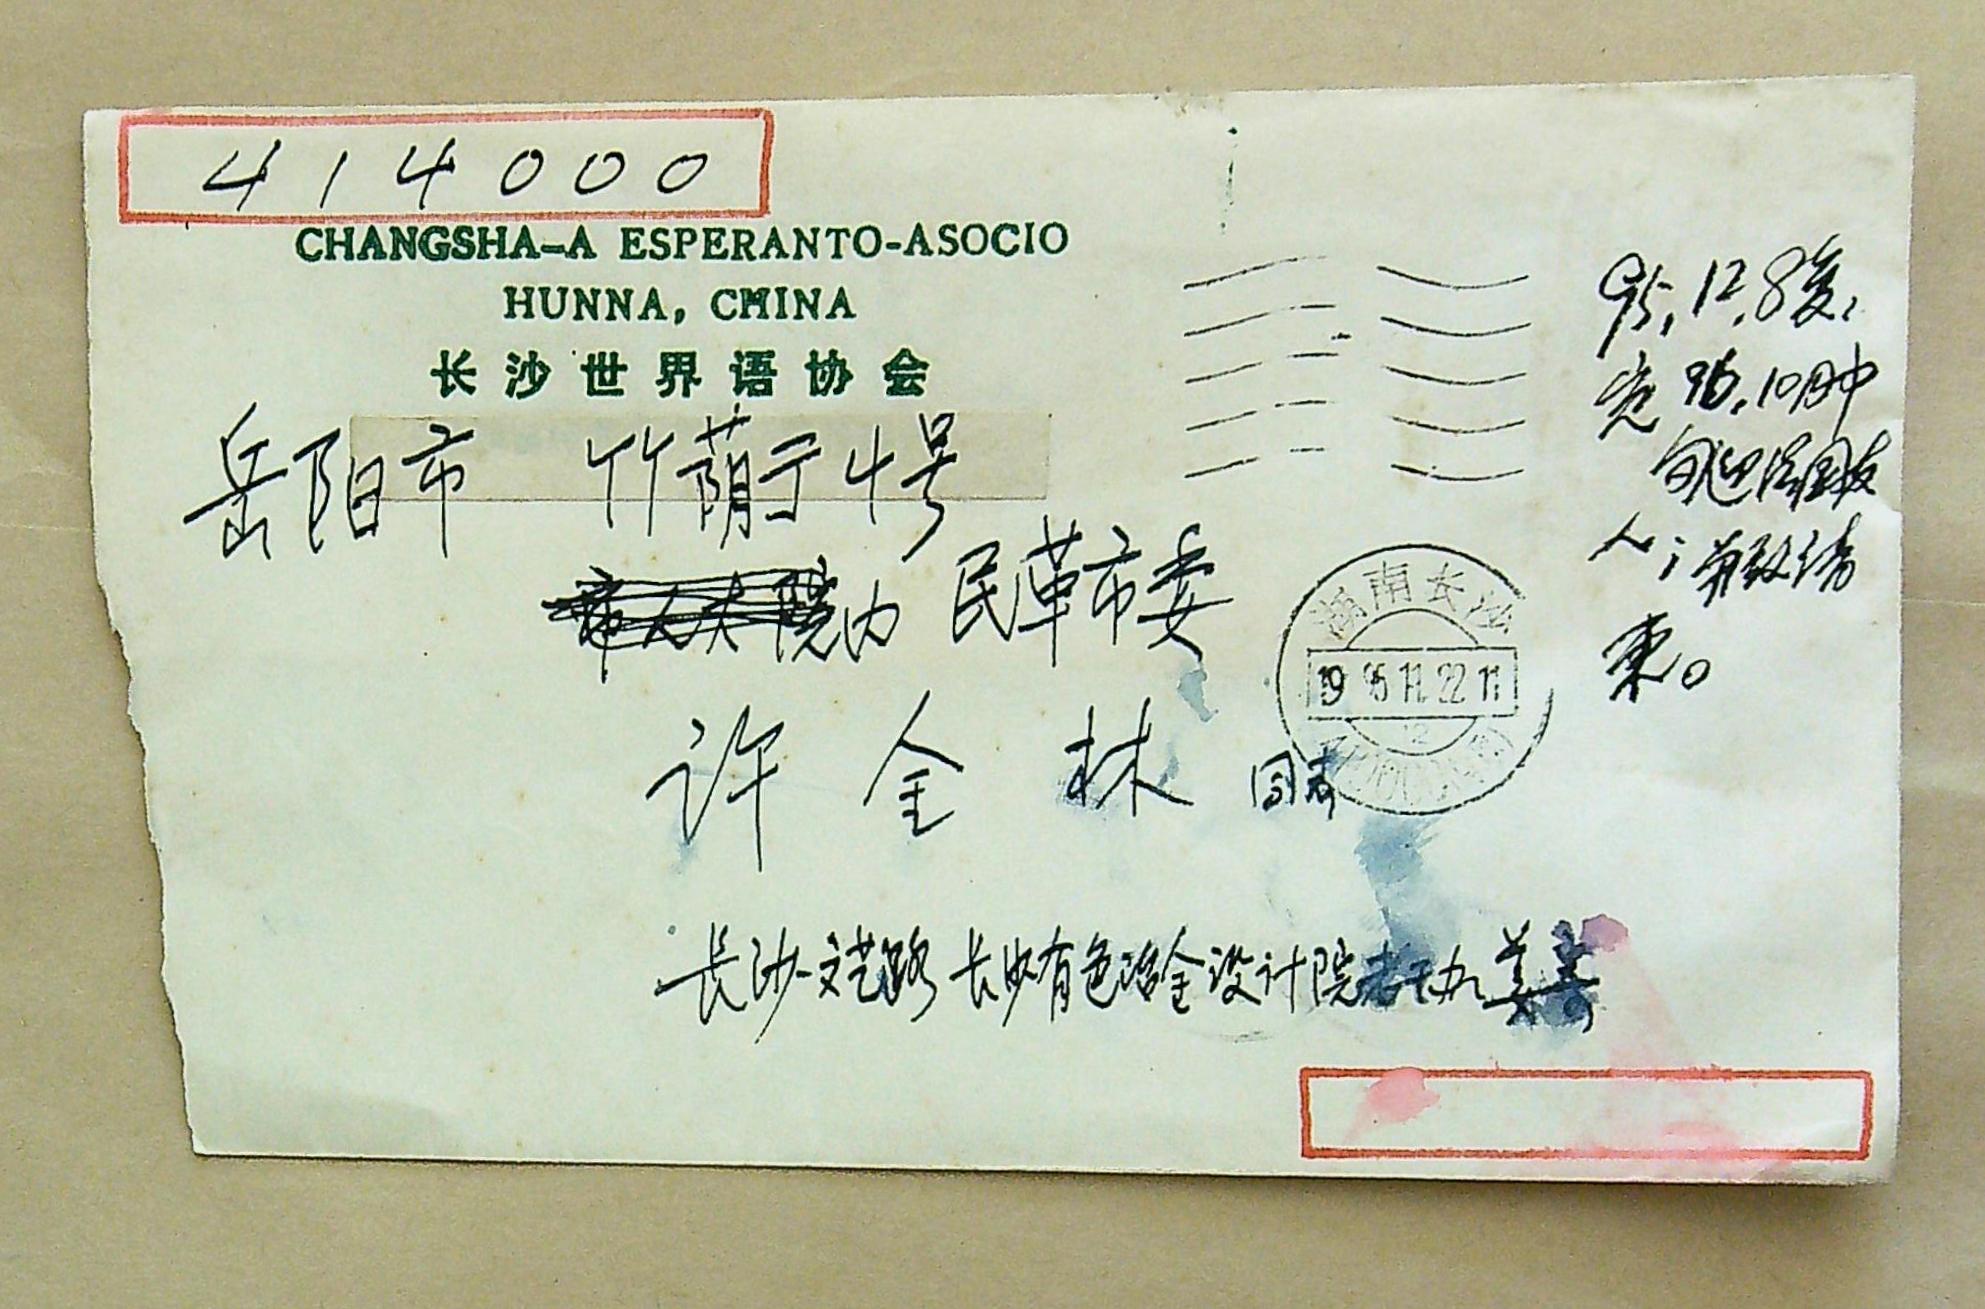 414000
CHANGSHA-A ESPERANTO-ASOCIO
HUNNA, CHINA
长沙世界语协会
岳阳市 竹荫于4号
市人大院内 民革市委
许金林 同志
长沙文艺路长沙有色冶金设计院老干办 姜
湖南长沙
1995.11.22 11
12
95.12.8复,
96.10月中
旬迎法国友
人;并致请
柬。